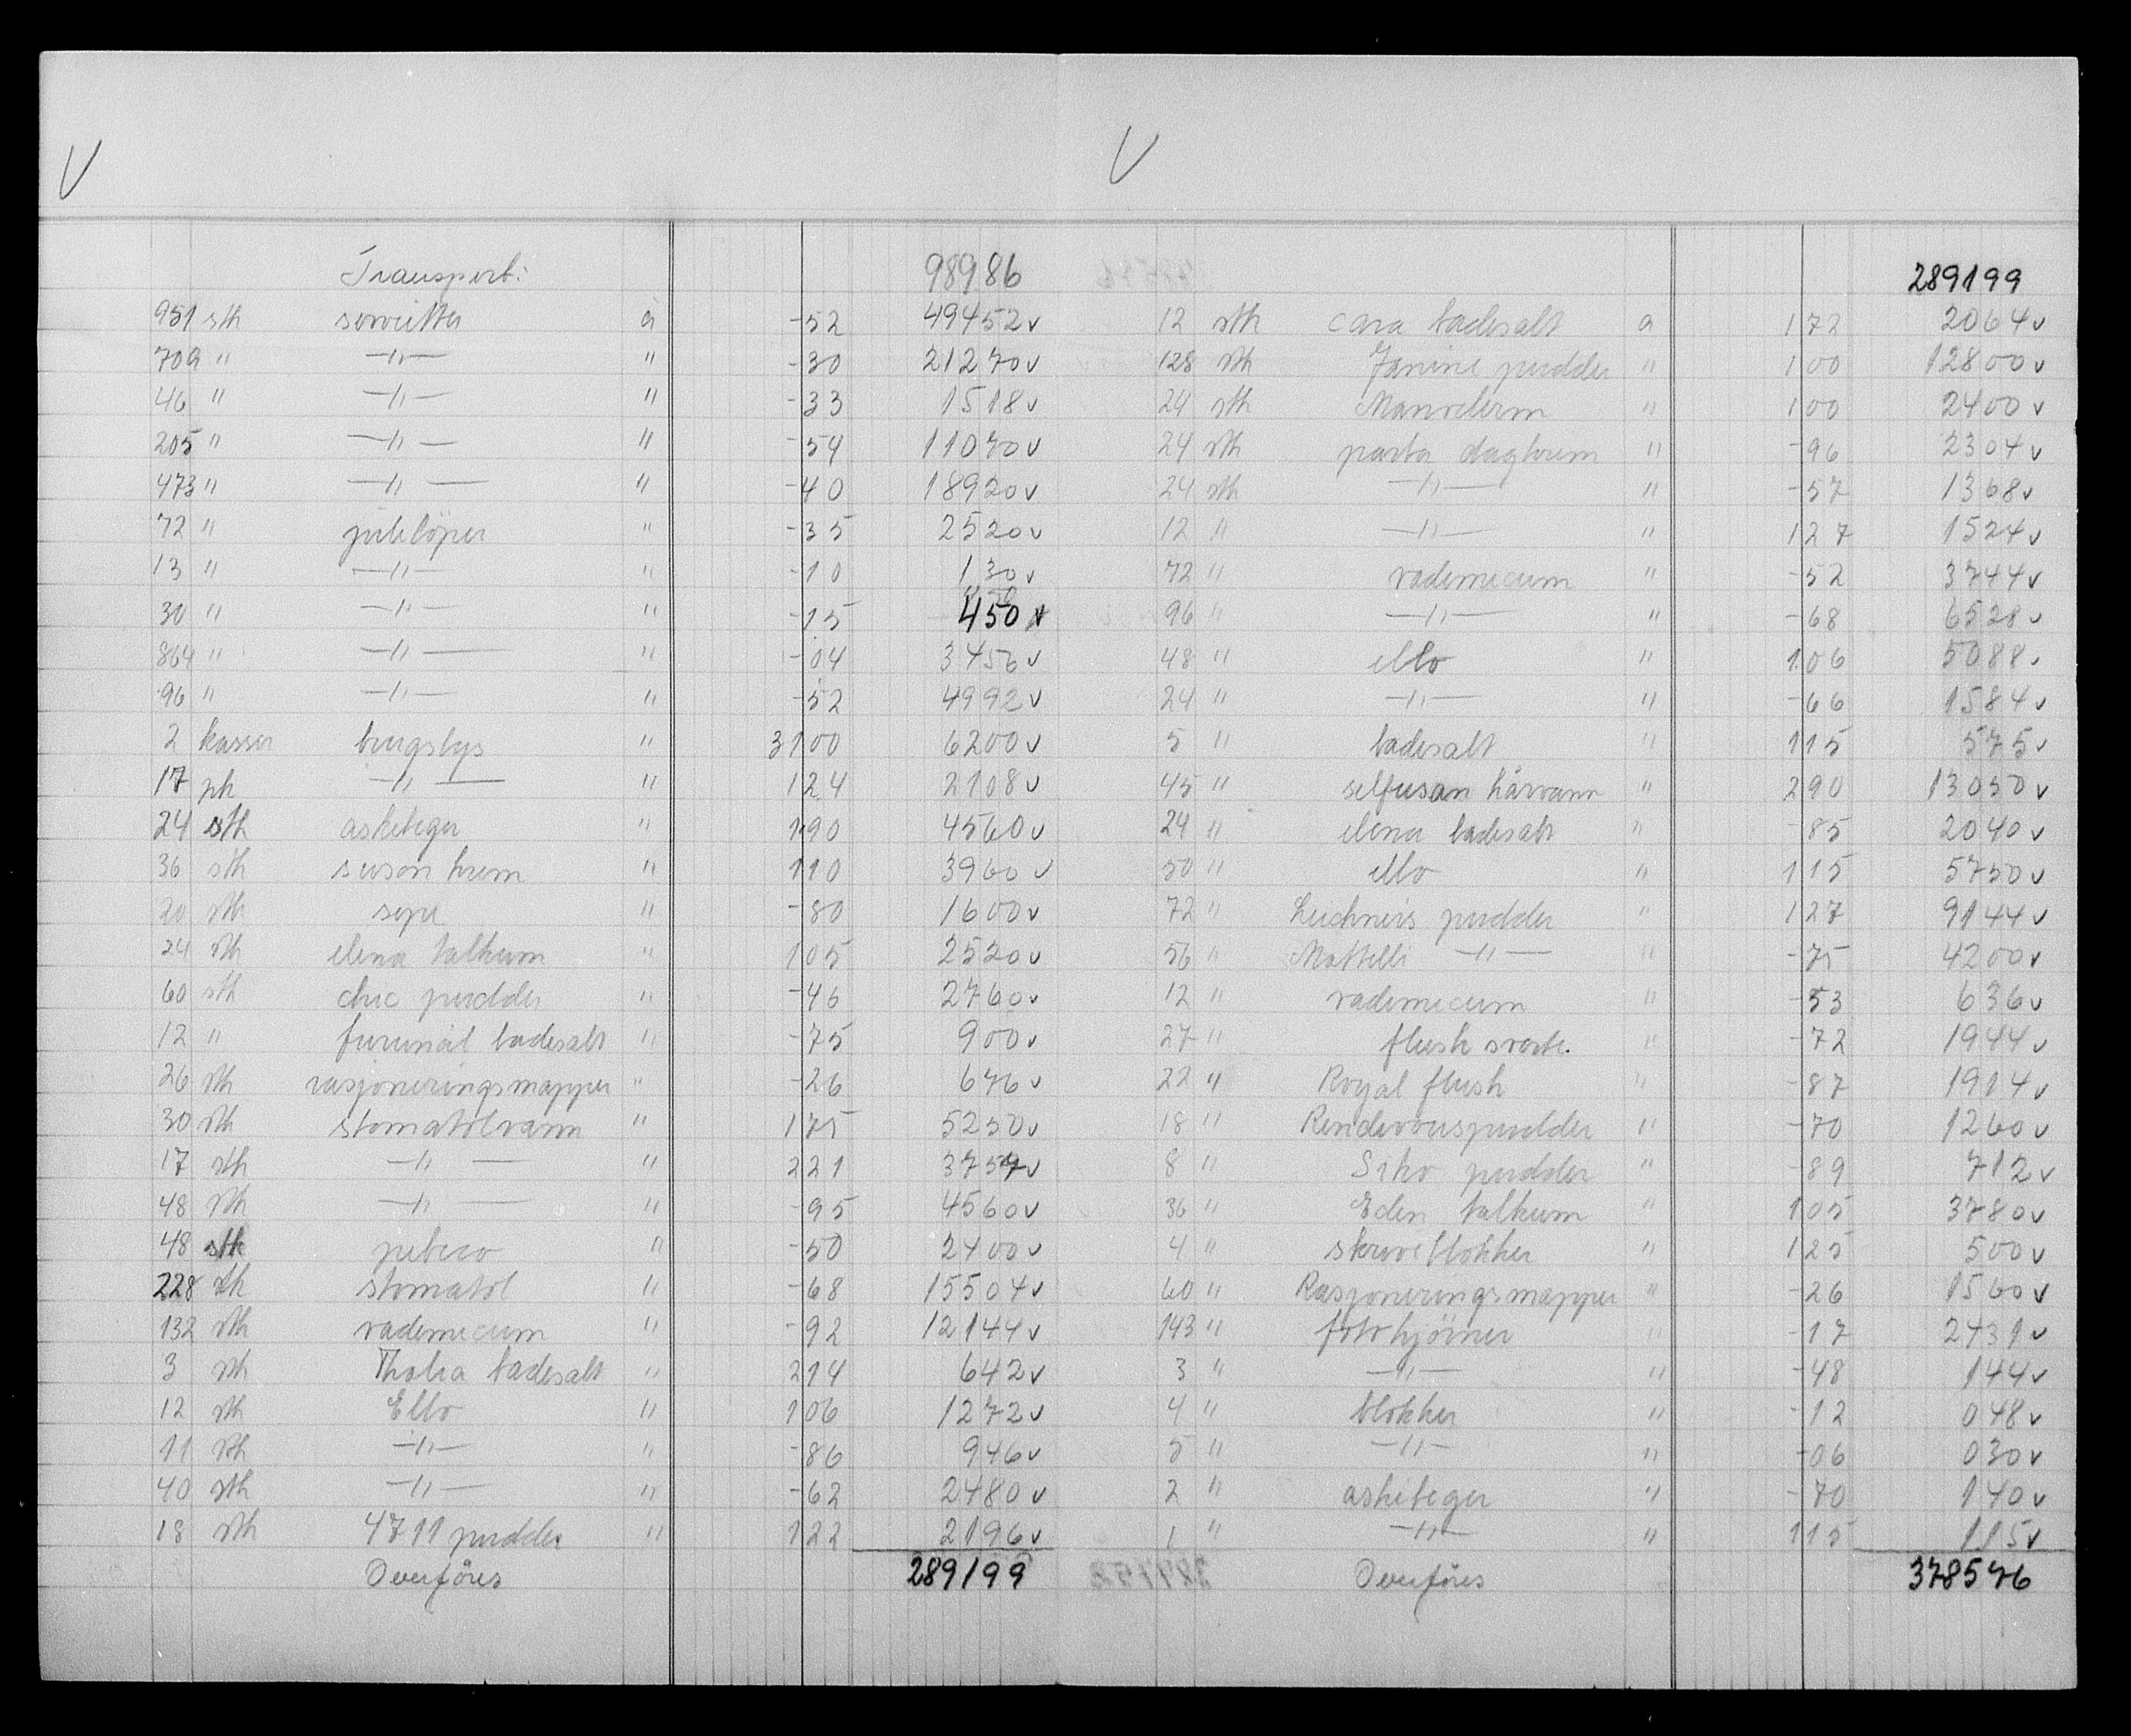 V
Transport: 98986
951 stk servietter à -52 49452 v
709 " —"— " -30 21270 v
46 " —"— " -33 1518 v
205 " —"— " -54 11070 v
473 " —"— " -40 18920 v
72 " juleløper " -35 2520 v
13 " —"— " -10 130 v
30 " —"— " -15 450 v
864 " —"— " -04 3456 v
96 " —"— " -52 4992 v
2 kasser bergslys " 3100 6200 v
17 pk —"— " 124 2108 v
24 stk askebeger " 190 4560 v
36 stk suson krem " 110 3960 v
20 stk sepe " -80 1600 v
24 stk elena talkum " 105 2520 v
60 stk chic pudder " -46 2760 v
12 " furunål badesalt " -75 900 v
26 stk rasjoneringsmapper " -26 676 v
30 stk stomatolvann " 175 5250 v
17 stk —"— " 221 3757 v
48 stk —"— " -95 4560 v
48 stk pebeco " -50 2400 v
228 stk stomatol " -68 15504 v
132 stk vademecum " -92 12144 v
3 stk Thalia badesalt " 214 642 v
12 stk Ello " 106 1272 v
11 stk —"— " -86 946 v
40 stk —"— " -62 2480 v
18 stk 4711 pudder " 122 2196 v
Overföres 289199
V
289199
12 stk cara badesalt a 172 2064 v
128 stk Janine pudder " 100 12800 v
24 stk Manoderm " 100 2400 v
24 stk pasta dagkrem " -96 2304 v
24 stk —"— " -57 1368 v
12 " —"— " 127 1524 v
72 " vademecum " -52 3744 v
96 " —"— " -68 6528 v
48 " ello " 106 5088 v
24 " —"— " -66 1584 v
5 " badesalt " 115 575 v
45 " selfusan hårvann " 290 13050 v
24 " elena badesalt " -85 2040 v
50 " ello " 115 5750 v
72 " Leichners pudder " 127 9144 v
56 " Mattelli —"— " -75 4200 v
12 " vademecum " -53 636 v
27 " flush svarte. " -72 1944 v
22 " Royal flush " -87 1914 v
18 " Rendevouspudder " -70 1260 v
8 " Siko pudder " -89 712 v
36 " Eden talkum " 105 3780 v
4 " skriveblokker " 125 500 v
60 " Rasjoneringsmapper " -26 1560 v
143 " fotohjörner " -17 2431 v
3 " —"— " -48 144 v
4 " blokker " -12 048 v
5 " —"— " -06 030 v
2 " askebeger " -70 140 v
1 " —"— " 115 115 v
Overföres 378576